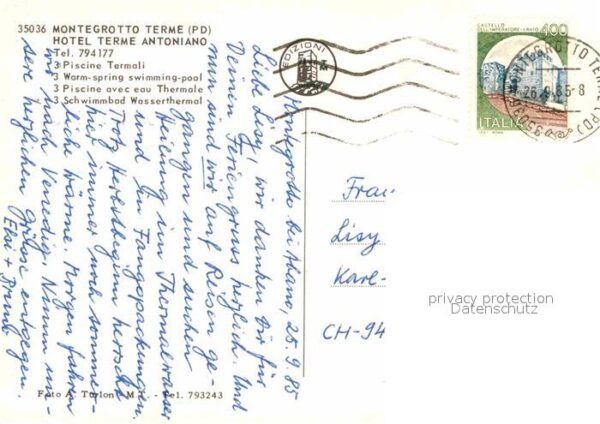 35036 MONTEGROTTO TERME (PD)
HOTEL TERME ANTONIANO
Tel. 794177
3 Piscine Termali
3 Warm-spring swimming-pool
3 Piscines avec eau Thermale
3 Schwimmbad Wasserthermal
EDIZIONI
CASTELLO
DELL'IMPERATORE - PRATO
400
ITALIA
MONTEGROTTO TERME (PD)
26.9.85-8
35036
Montegrotto bei Abano, 25.9.85
Liebe Lisy, wir danken Dir für
Deinen Feriengruss herzlich. Und
nun sind wir auf Reisen ge-
gangen und suchen
Heilung im Thermalwasser
und in Fangopackungen.
Trotz Herbstbeginn herrscht
hier immer noch sommer-
liche Wärme. Morgen fahren
wir nach Venedig. Nimm un-
sere herzlichen Grüsse entgegen.
Elsi + Bruno
Frau
Lisy
Karl-
CH-94
privacy protection
Datenschutz
Foto A. Turlon M.T. - Tel. 793243